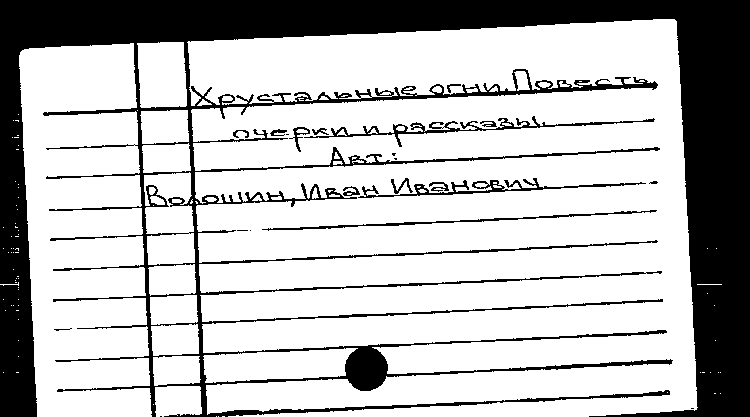 Хрустальные огни. Повесть,
очерки и рассказы.
Авт.:
Волошин, Иван Иванович.